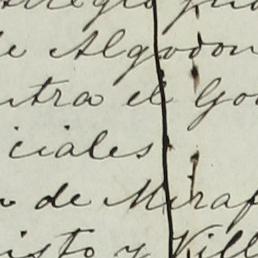 de Algodon
ntra el Go
iciales
de Miraf
isto y Vill